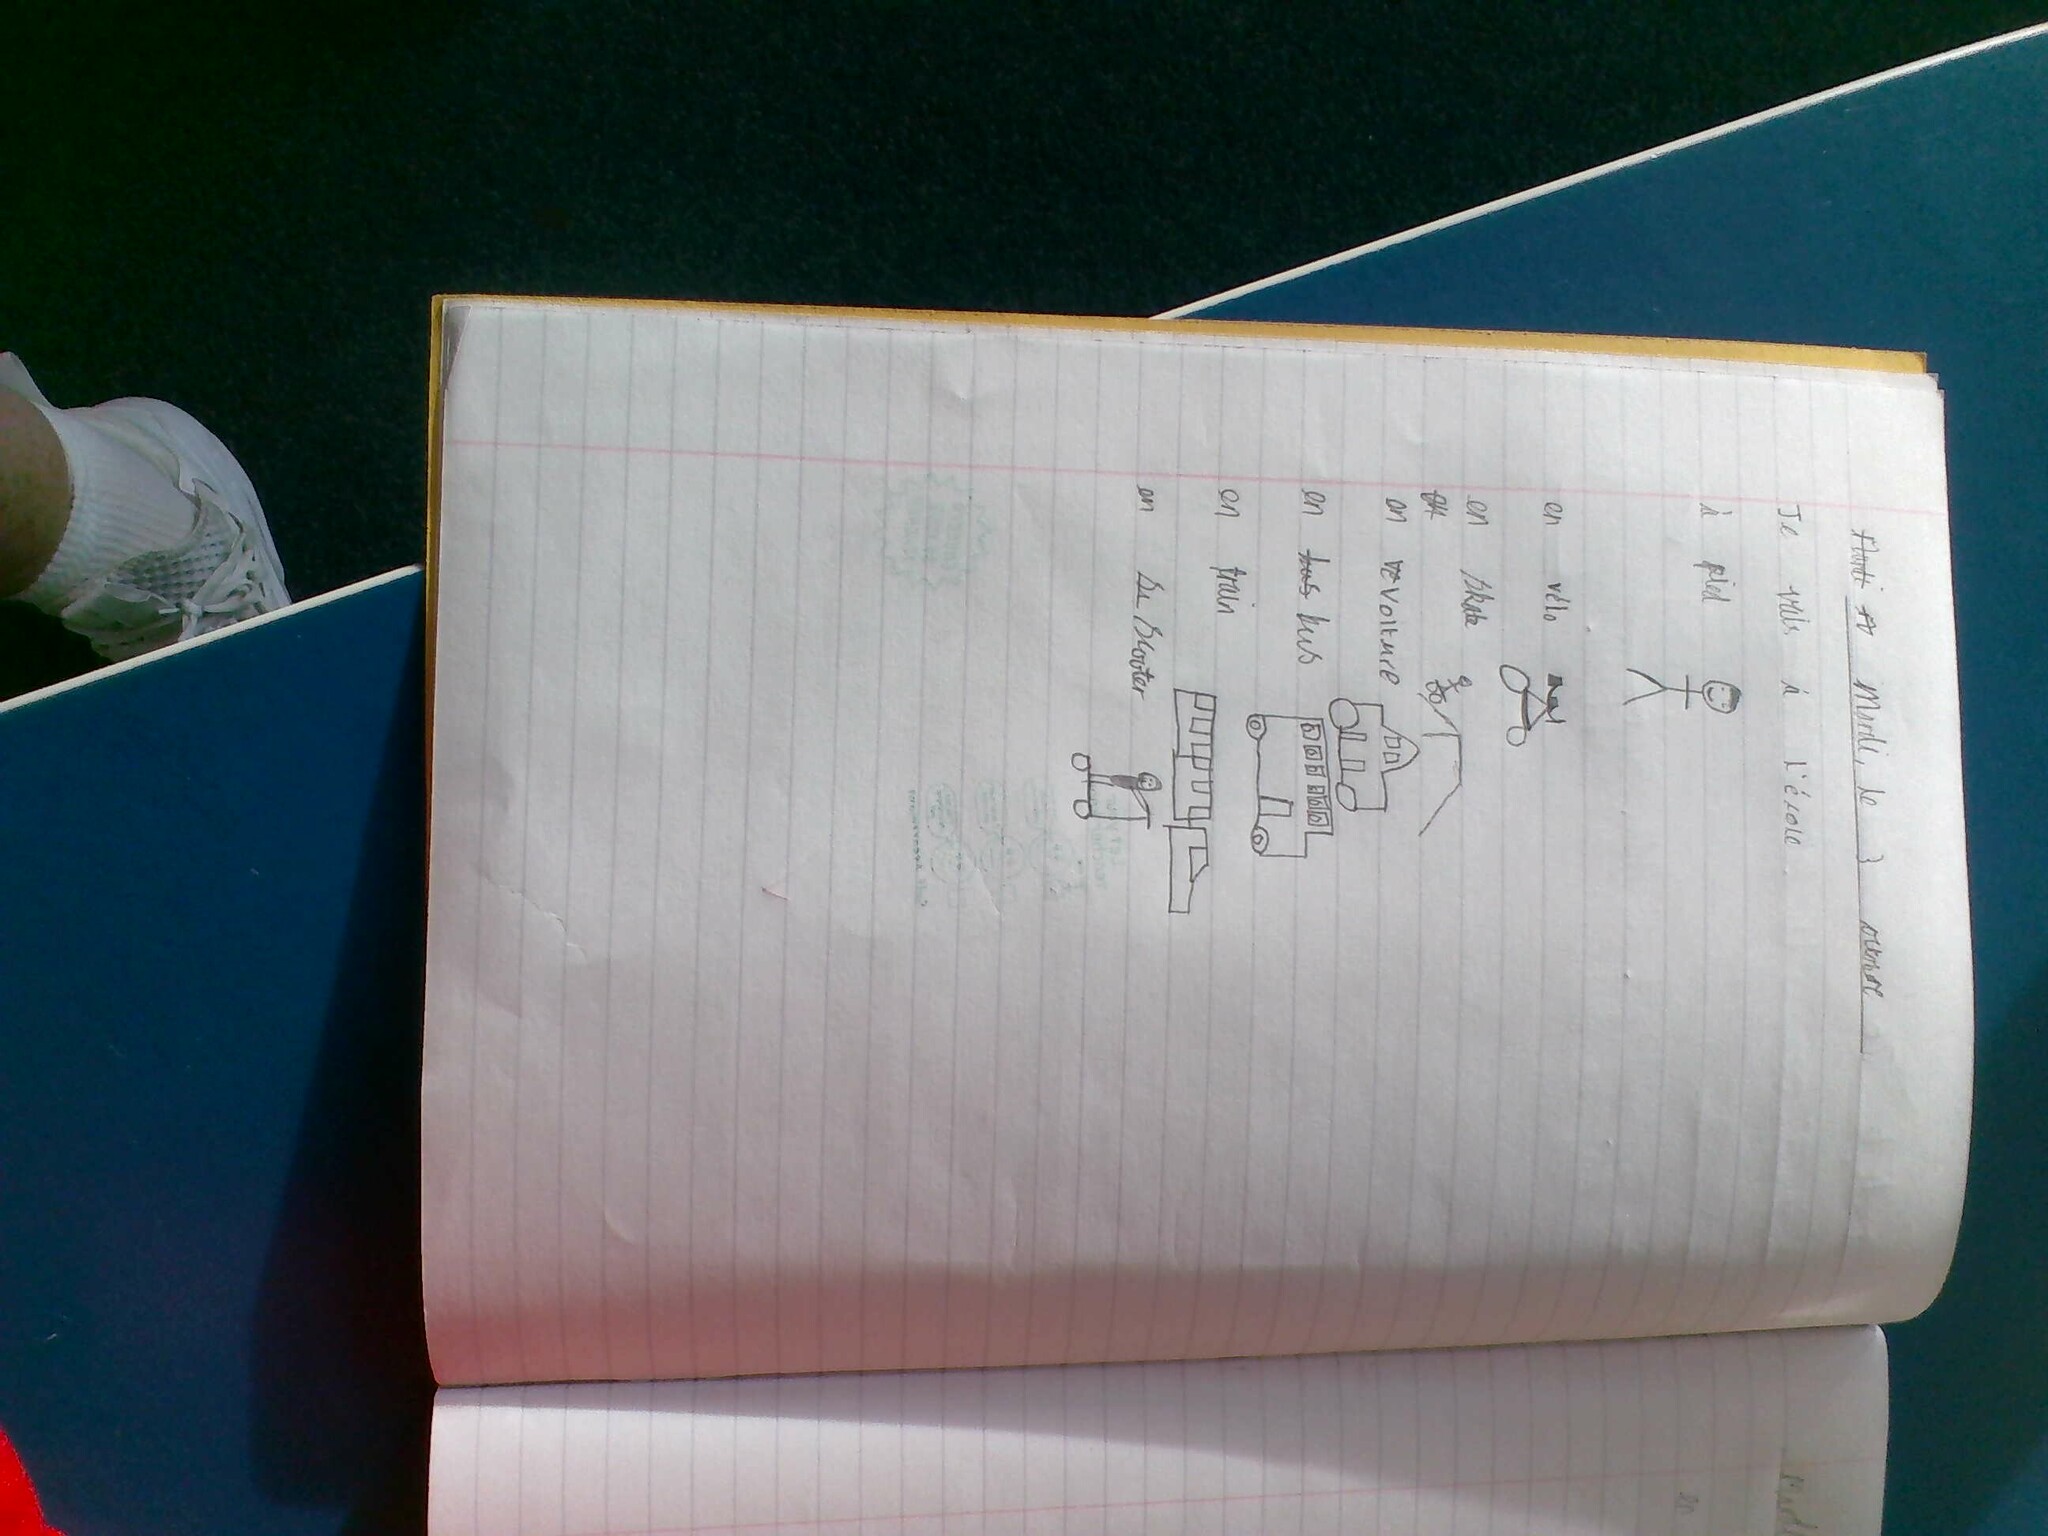 Mardi, le 3
Je vais à l'école
à pied
en vélo
en skate
en voiture
en bus bus
en train
en scooter